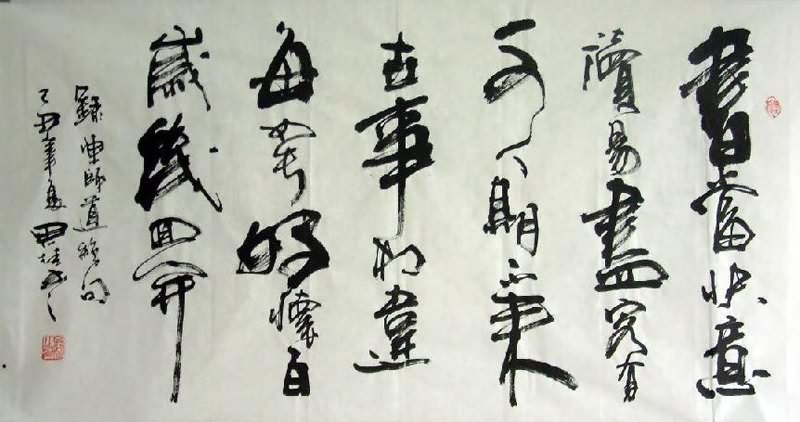 書當快意
讀易盡客有
可人期不來
世事相違
每如此好懷百
歲幾回開
錄陳師道詩句
己丑年夏